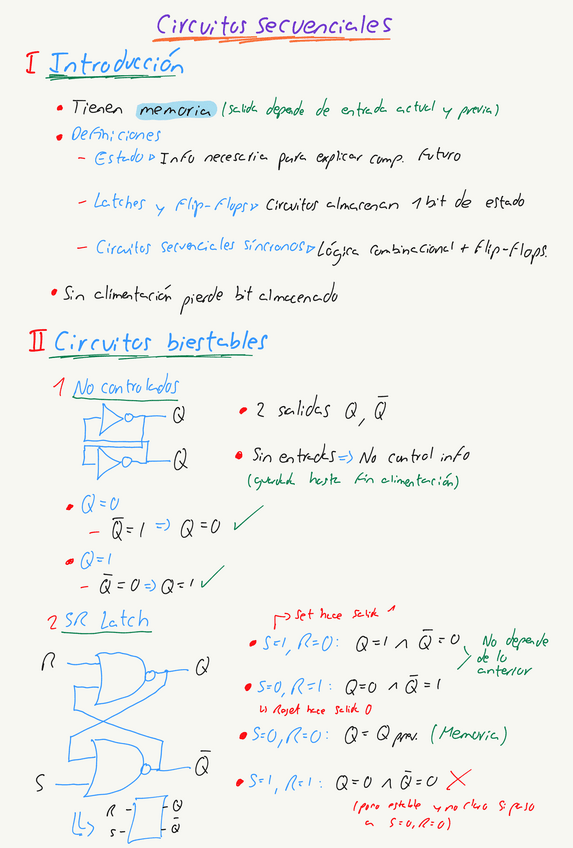 Circuitos secuenciales
I Introducción
• Tienen memoria (salida depende de entrada actual y previa)
• Definiciones
- Estado ▷ Info necesaria para explicar comp. futuro
- Latches y Flip-Flops ▷ Circuitos almacenan 1 bit de estado
- Circuitos secuenciales síncronos ▷ Lógica combinacional + Flip-Flops.
• Sin alimentación pierde bit almacenado
II Circuitos biestables
1 No controlados
Q
Q
• 2 salidas Q, Q̅
• Sin entradas => No control info
(guardada hasta fin alimentación)
• Q=0
- Q̅=1 => Q=0 ✓
• Q=1
- Q̅=0 => Q=1 ✓
2 SR Latch
R
Q
S
Q̅
R
Q
S
Q̅
↱ Set hace salida 1
• S=1, R=0: Q=1 ∧ Q̅=0
• S=0, R=1: Q=0 ∧ Q̅=1
↳ Reset hace salida 0
No depende
de lo
anterior
• S=0, R=0: Q = Q prev. (Memoria)
• S=1, R=1: Q=0 ∧ Q̅=0 ✗
(poco estable y no claro si paso
a S=0, R=0)